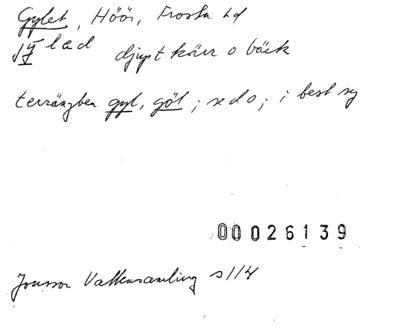 Gylet, Höör, Frosta hd
djupt kärr o bäck
terrängben gyl, göl; se do; i best sg
00026139
Jonsson Vattensamling s 112